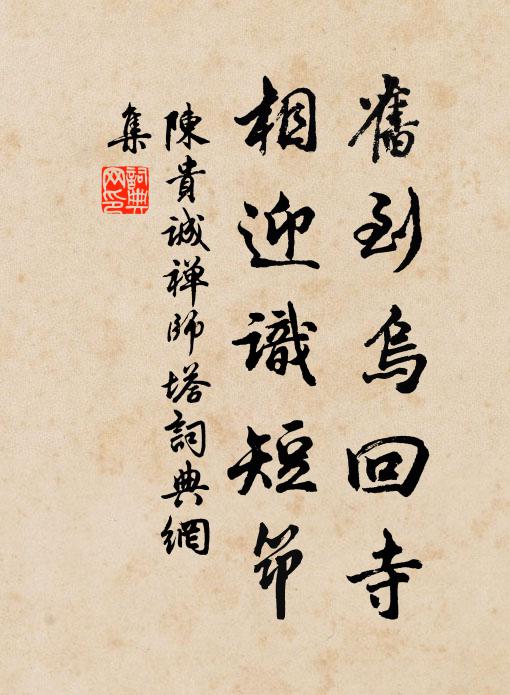 舊到烏回寺
相迎識短筇
陳貴誠禅師塔詞典網
集
詞典
网印